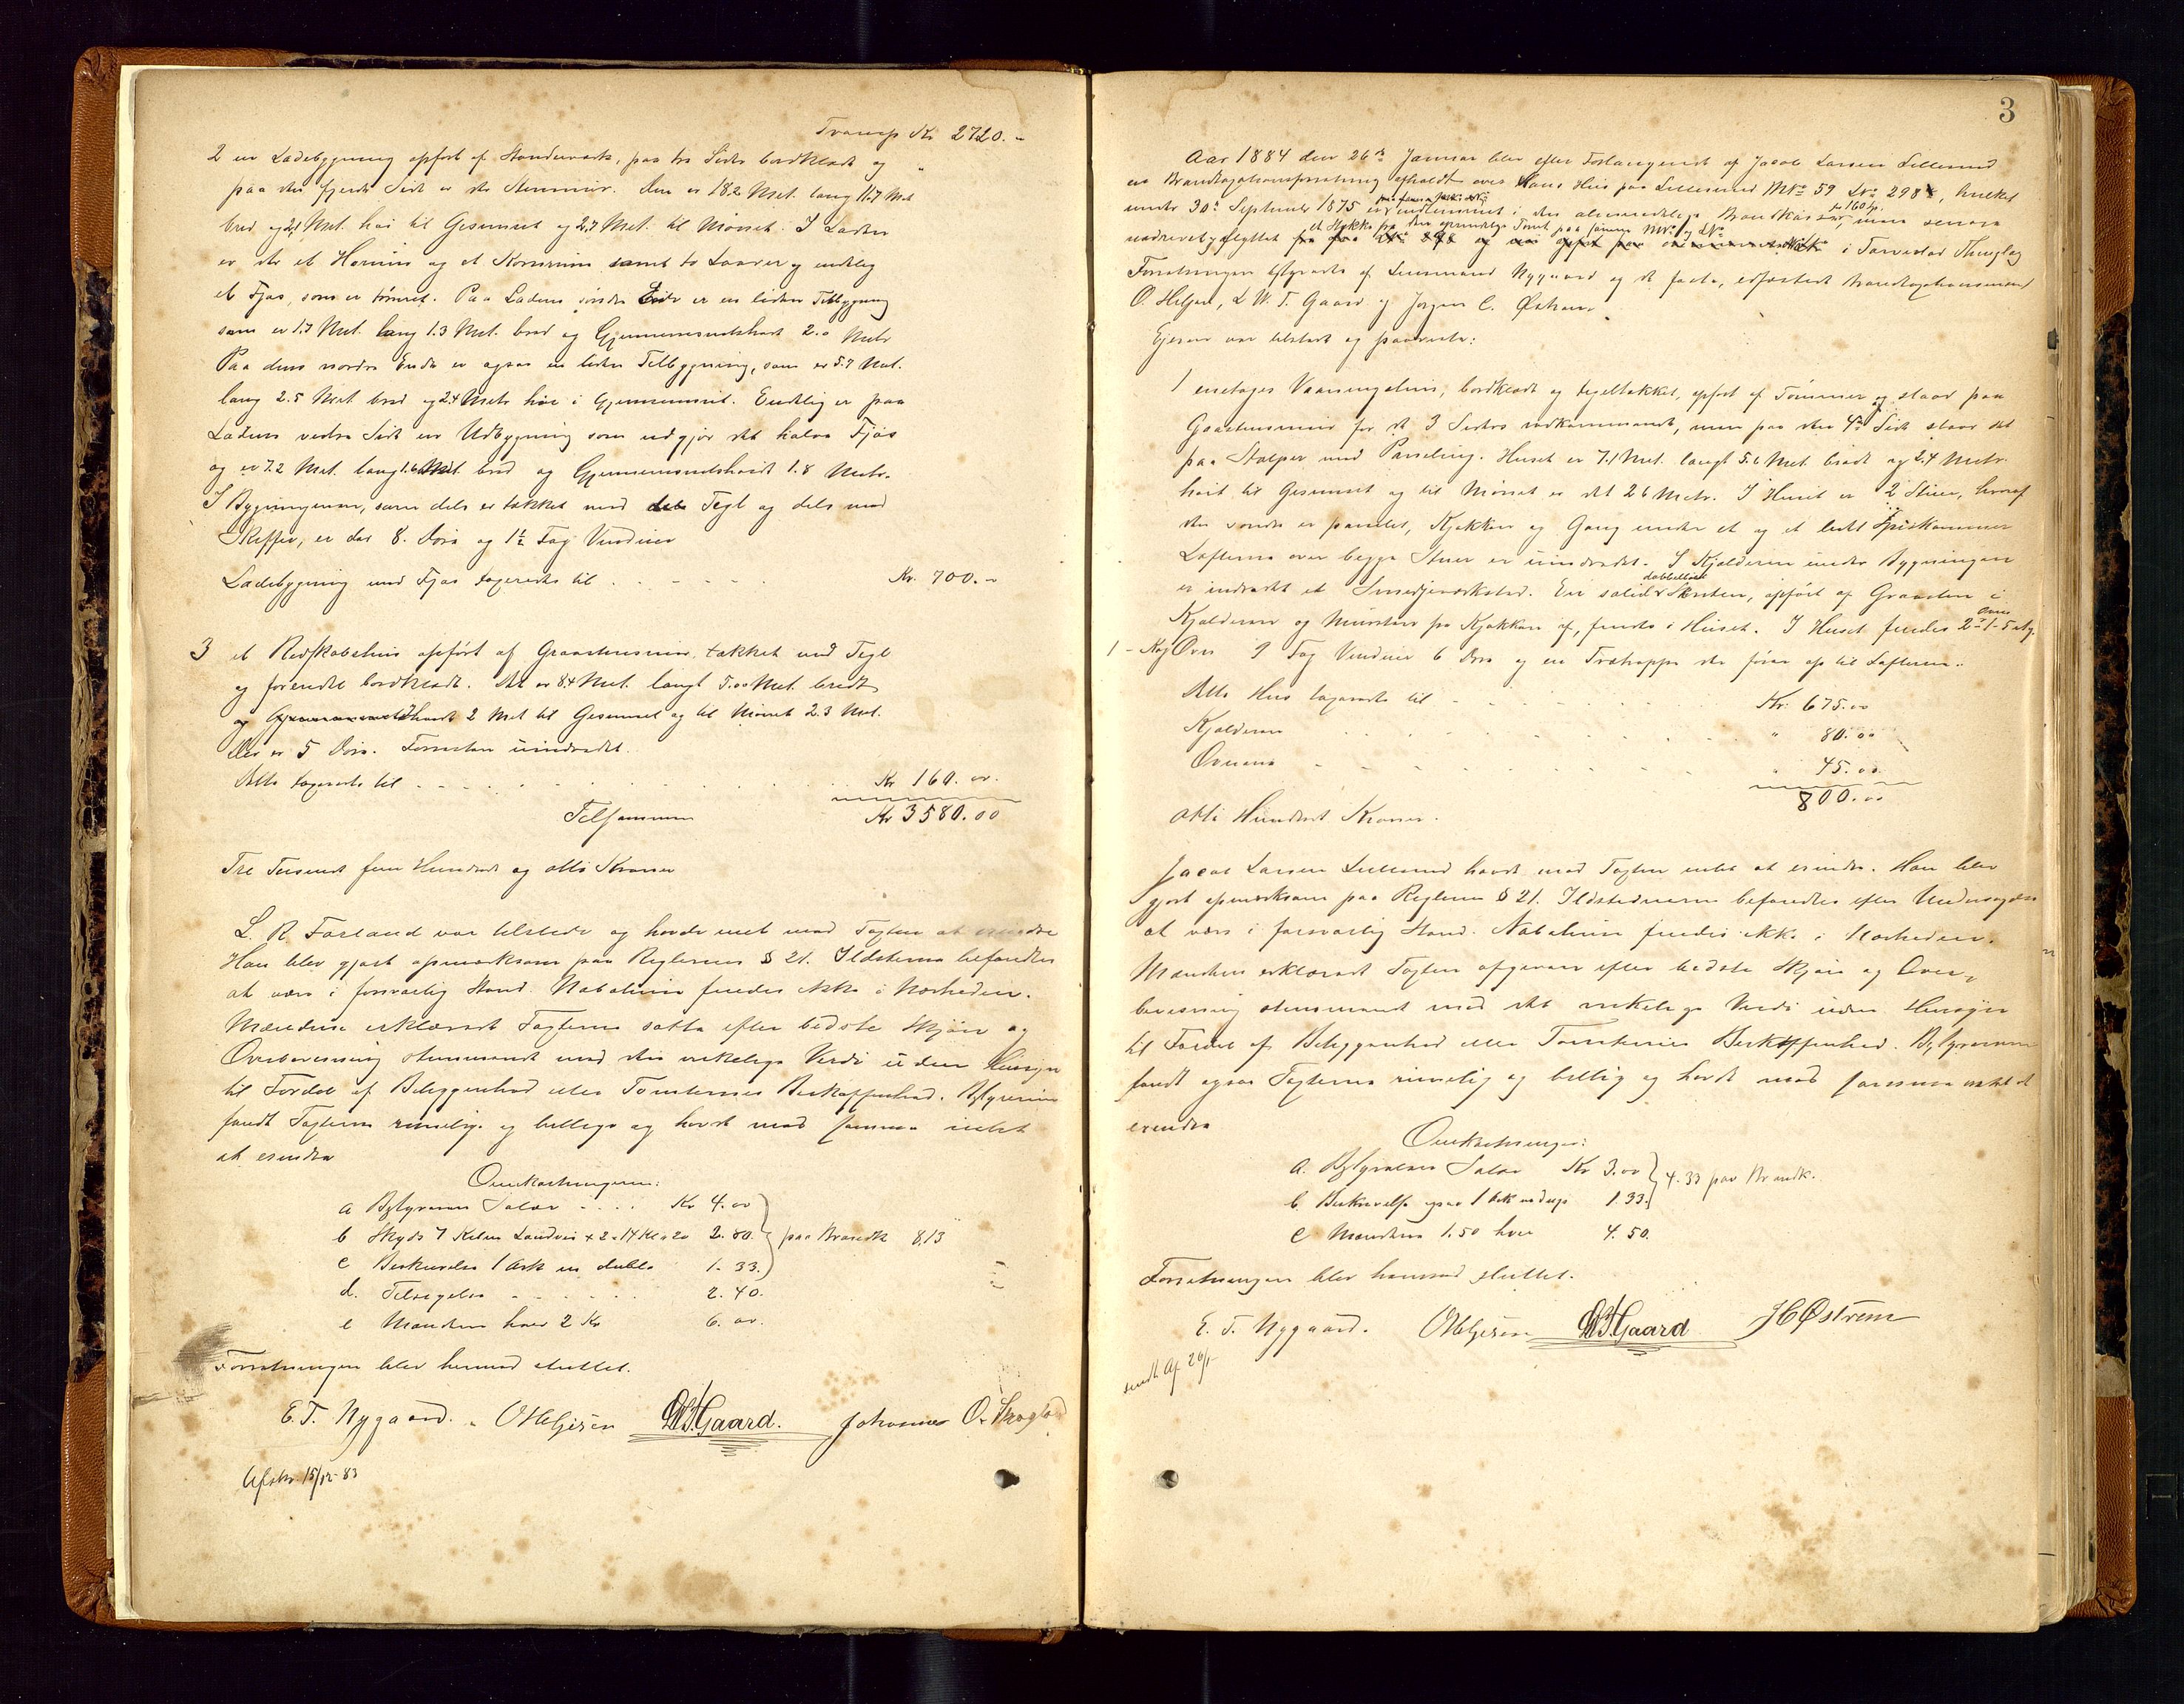 Transp Kr 2720.-
2 en Ladebygning opført af Standerværk, paa tre Sider bordklædt og
paa den fjerde Side er der Stenmur. Den er 18.2 Met. lang 11.7 Met
bred og 2.1 Met. høi til Gesimset og 2.7 Met. til Mønet. I Laden
er der et Hørum og et Kornrum samt to Laaver og endelig
et Fjøs, som er tømret. Paa Ladens søndre Ende er en liden Tilbygning
som er 1.7 Met. lang 1.3 Met. bred og Gjennemsnitshøide 2.0 Metr
Paa dens nordre Ende er ogsaa en liden Tilbygning, som er 5.7 Met.
lang 2.5 Met bred og 2.4 Metr høi i Gjennemsnit. Endelig er paa
Ladens vestre Side en Udbygning som udgjør det halve Fjøs
og er 7.2 Met. lang 1.6 Met. bred og Gjennemsnitshøide 1.8 Metr.
I Bygningerne, som dels er tækket med Tegl og dels med
Skiffer, er der 8. Døre og 1½ Fag Vinduer
Ladebygning med Fjøs taxeredes til . - - - - . Kr. 700.-
3 et Redskabshus opført af Graastensmur, tækket med Tegl
og forendte bordklædt. Det er 8.4 Met. langt 5.00 Met. bredt
og Gjennemsnitshøide 2 Met til Gesimset og til Mønet 2.3 Met.
Der er 5 Døre. Forresten uindredet.
Dette taxeredes til - - - - Kr 160.00.
Tilsammen Kr 3580.00
Tre Tusende fem Hundrede og otti Kroner
L. R. Førland var tilstede og havde intet mod Taxten at erindre
Han blev gjort opmærksom paa Reglernes § 21. Ildstederne befandtes
at være i forsvarlig Stand. Nabohuse findes ikke i Nærheden.
Mændene erklærede Taxterne satte efter bedste Skjøn og
Overbevisning stemmende med den virkelige Værdi uden Hensyn
til Fordel af Beliggenhed eller Tomternes Beskaffenhed. Bestyreren
fandt Taxterne rimelige og billige og havde mod samme intet
at erindre
Omkostningerne:
a Bestyrerens Salær . . . . Kr 4.00
b Skyds 7 Kilm Landvei + 2 = 14 Kl a 20 2.80. paa Brandk 8,13
c Beskrivelse 1 Ark in duplo 1.33.
d. Tilsigelse - - - - 2.40.
e Mændene hver 2 Kr 6.00.
Forretningen blev hermed sluttet.
E. T. Nygaard. O Helgesen LWTGaard. Johannes O. Skogland
Afskr. 15/12-83
3
Aar 1884 den 26de Januar blev efter Forlangende af Jacob Larsen Lillesund
en Brandtaxationsforretning afholdt over Hans Hus paa Lillesund MNo 59 LNo 298, hvilket
for 160 Spd.
under 30te September 1875 er indlemmet i den almindelige Brandkasse, men senere
et Stykke fra den oprindelige Tomt paa samme MNo og LNo
nedrevet og flyttet i Torvestad Thinglag
Forretningen bestyredes af Lensmand Nygaard og de faste, edfæstede Brandtaxationsmænd
O. Helgesen, L W. T. Gaard og Jørgen C. Østrem.
Ejeren var tilstede og paaviste:
1 enetages Vaaningshus, bordklædt og tegltækket, opført af Tømmer og staar paa
Graastensmur for de 3 Siders vedkommende, men paa den 4de Side staar det
paa Stolper med Panseling. Huset er 7.1 Met. langt 5.6 Met. bredt og 2.4 Metr.
høit til Gesimset og til Mønet er det 2 6 Metr. I Huset er 2 Stuer, hvoraf
den søndre er panelet, Kjøkken og Gang under et og et lidet Spiskammer
Lofterne over begge Stuer er uindredet. I Kjælderen under Bygningen
dobbeltløbet
er indredet et Smedjeværksted. En solid Skorsten, opført af Graasten i
Kjælderen og Mursten fra Kjøkken af, findes i Huset. I Huset findes 2-1-5 etg.
Ovne
1 - Kog Ovn 9 Fag Vinduer 6 Døre og en Trætrappe der fører op til Lofterne.
Dette Hus taxeredes til - - - Kr. 675.00
Kjælderen - - - " 80.00
Ovnene - - - " 45.00
800.00
otte Hundrede Kroner.
Jacob Larsen Lillesund havde mod Taxten intet at erindre. Han blev
gjort opmærksom paa Reglernes § 21. Ildstederne befandtes efter Undersøgelse
at være i forsvarlig Stand. Nabohuse findes ikke i Nærheden.
Mændene erklærede Taxten afgiven efter bedste Skjøn og Over-
bevisning stemmende med det virkelige Værdi uden Hensyn
til Fordel af Beliggenhed eller Tomternes Beskaffenhed. Bestyreren
fandt ogsaa Taxterne rimelig og billig og havde mod samme intet at
erindre
Omkostninger:
a. Bestyrelsens Salær Kr 3.00 4.33 paa Brandk.
b. Beskrivelse 1.33.
c Mændene 1.50 hver 4.50.
Forretningen blev hermed sluttet.
E. T. Nygaard. OHelgesen LWTGaard JCØstrem
sendt Af 26/1